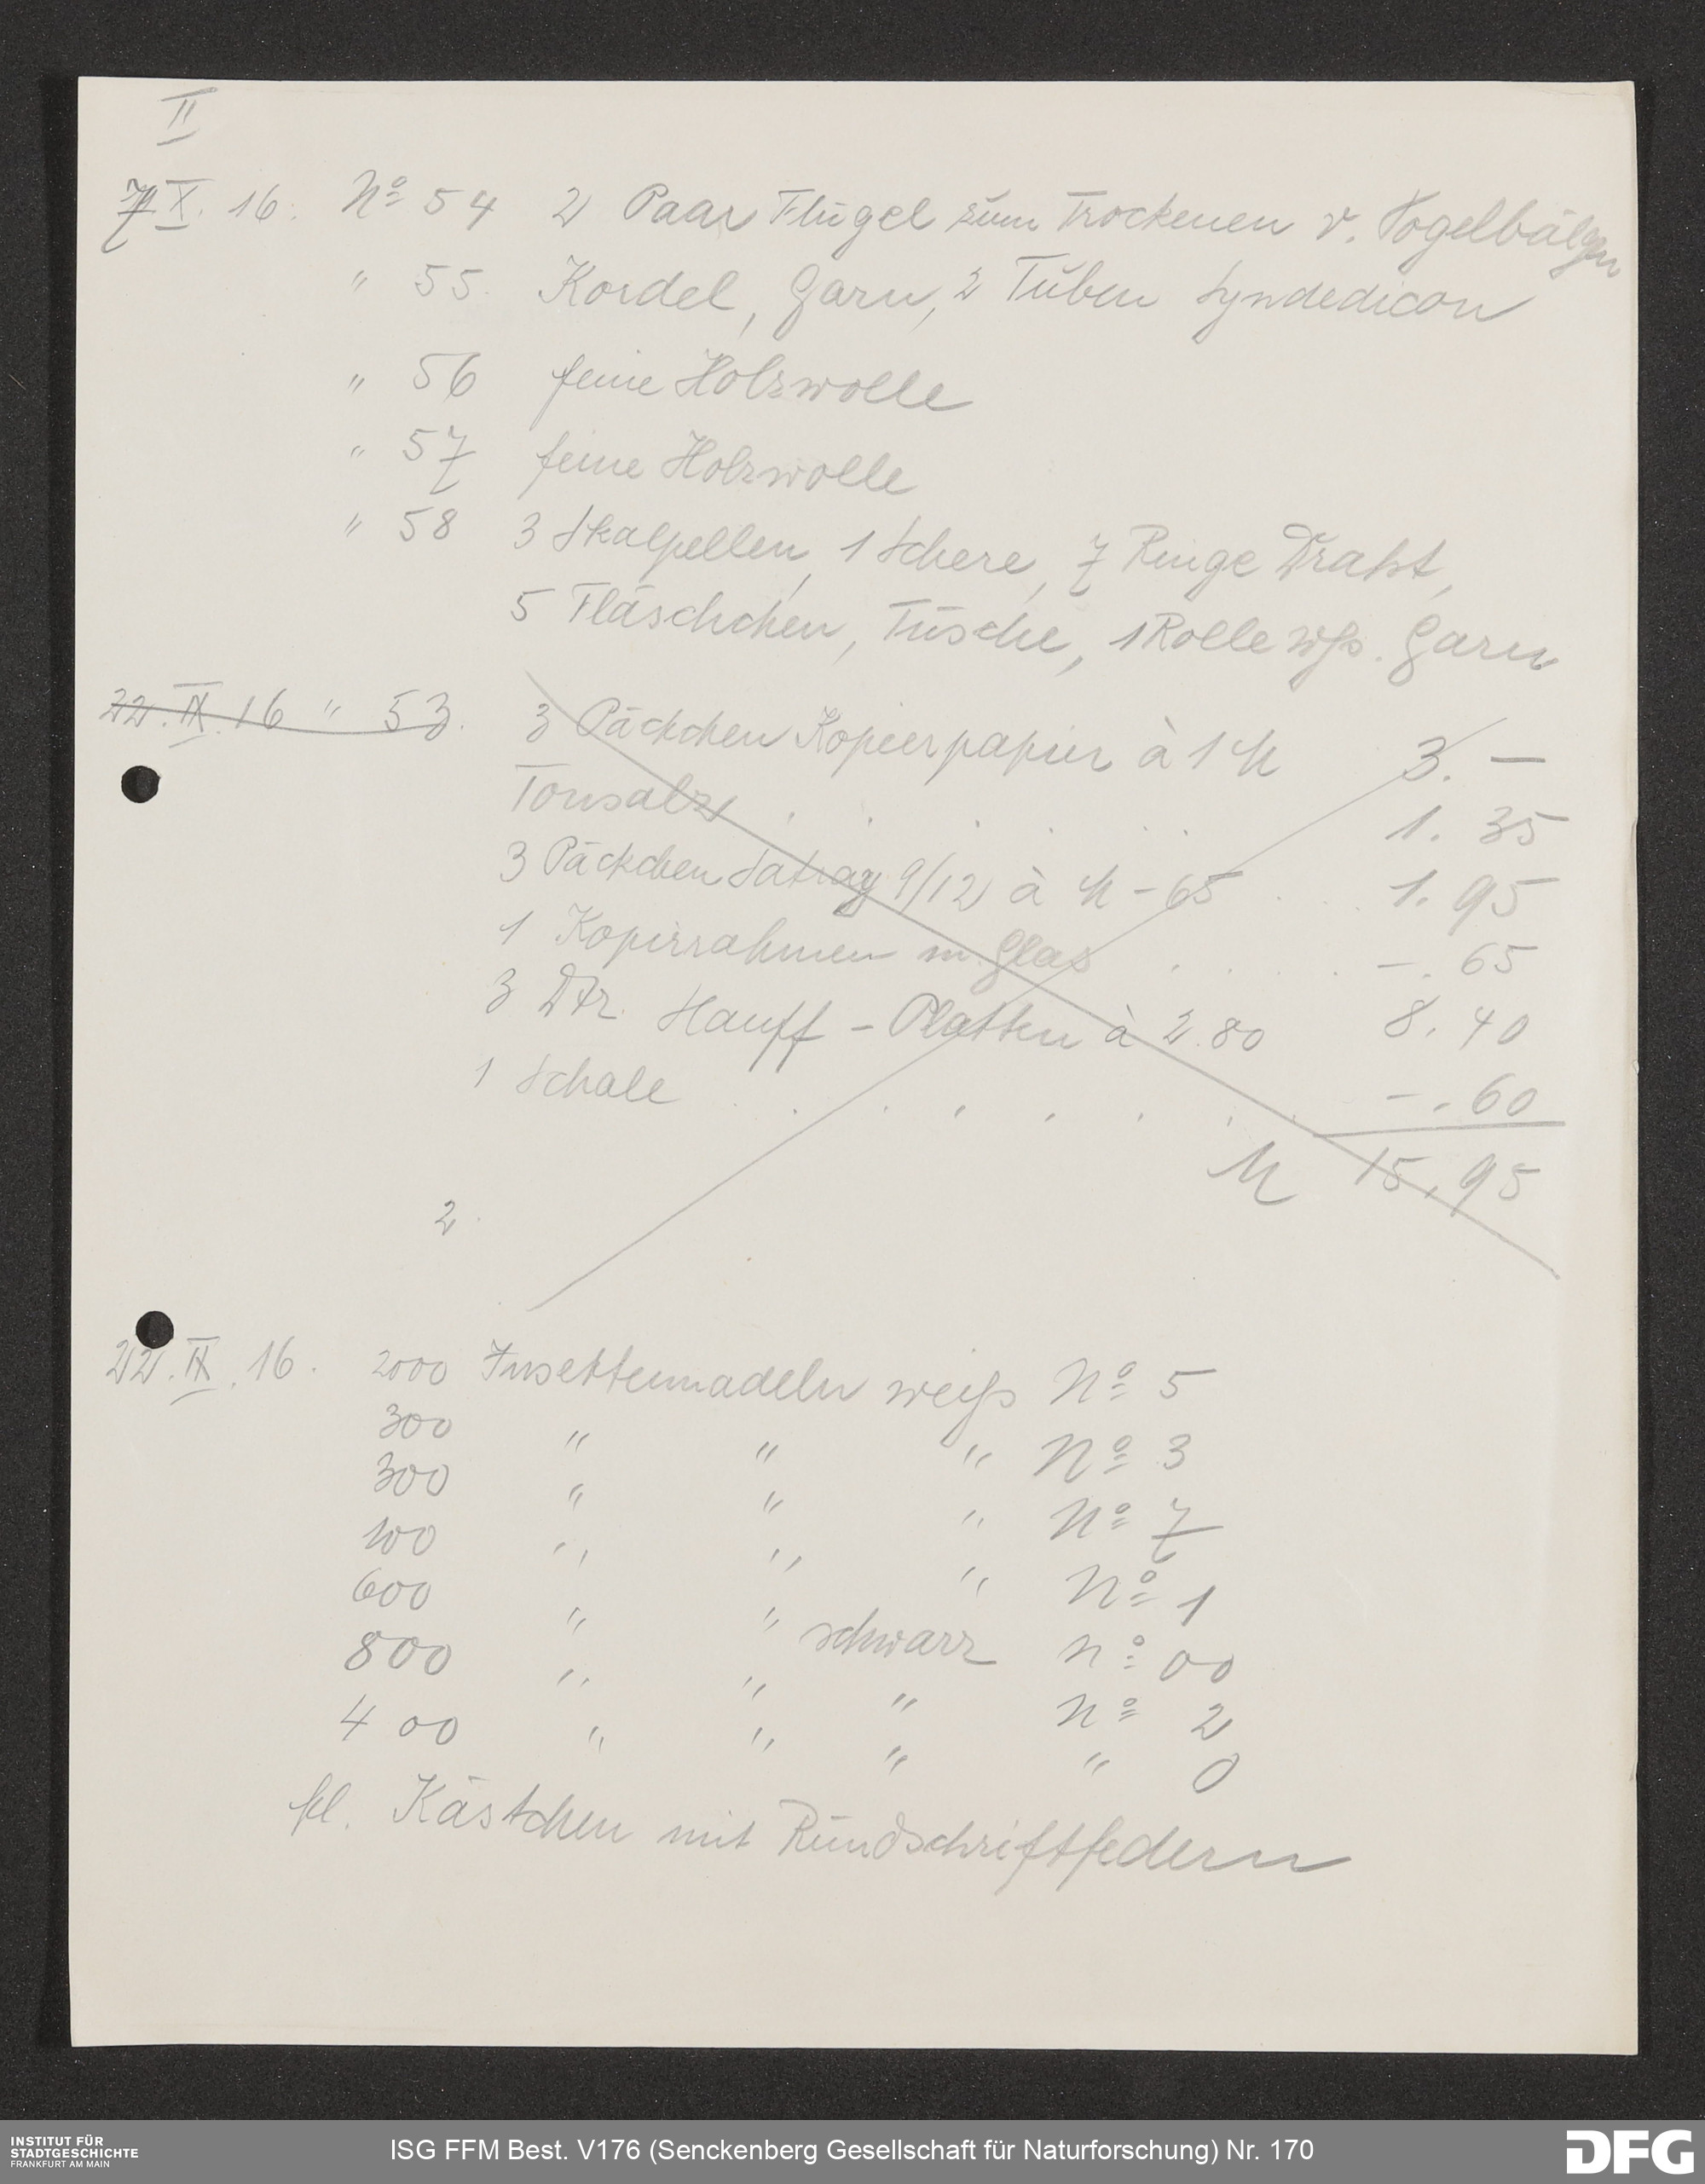 II
7. X. 16. No 54 2 Paar Flügel zum Trockenen v. Vogelbälgen
" 55. Kordel, Garn, 2 Tuben Syndedicon
" 56 feine Holzwolle
" 57 feine Holzwolle
" 58 3 Skalpellen, 1 Schere, 7 Ringe Draht,
5 Fläschchen, Tusche, 1 Rolle wß. Garn
22. IX. 16 " 53. 3 Päckchen Kopierpapier à 1 M 3. —
Tonsalz . . . . . . 1. 35
3 Päckchen Satrap 9/12 à M -65 . . . 1. 95
1 Kopirrahmen m. Glas . . . . -. 65
3 Dtz. Hauff - Platten à 2.80 8. 40
1 Schale . . . . . . . . -. 60
M 15,95
2.
22. IX. 16. 2000 Insektennadeln weiß No 5
300 " " " No 3
300 " " " No 7
100 " " " No 1
600 " " schwarz No 00
800 " " " No 2
400 " " " " 0
kl. Kästchen mit Rundschriftfedern
INSTITUT FÜR
STADTGESCHICHTE
FRANKFURT AM MAIN
ISG FFM Best. V176 (Senckenberg Gesellschaft für Naturforschung) Nr. 170
DFG